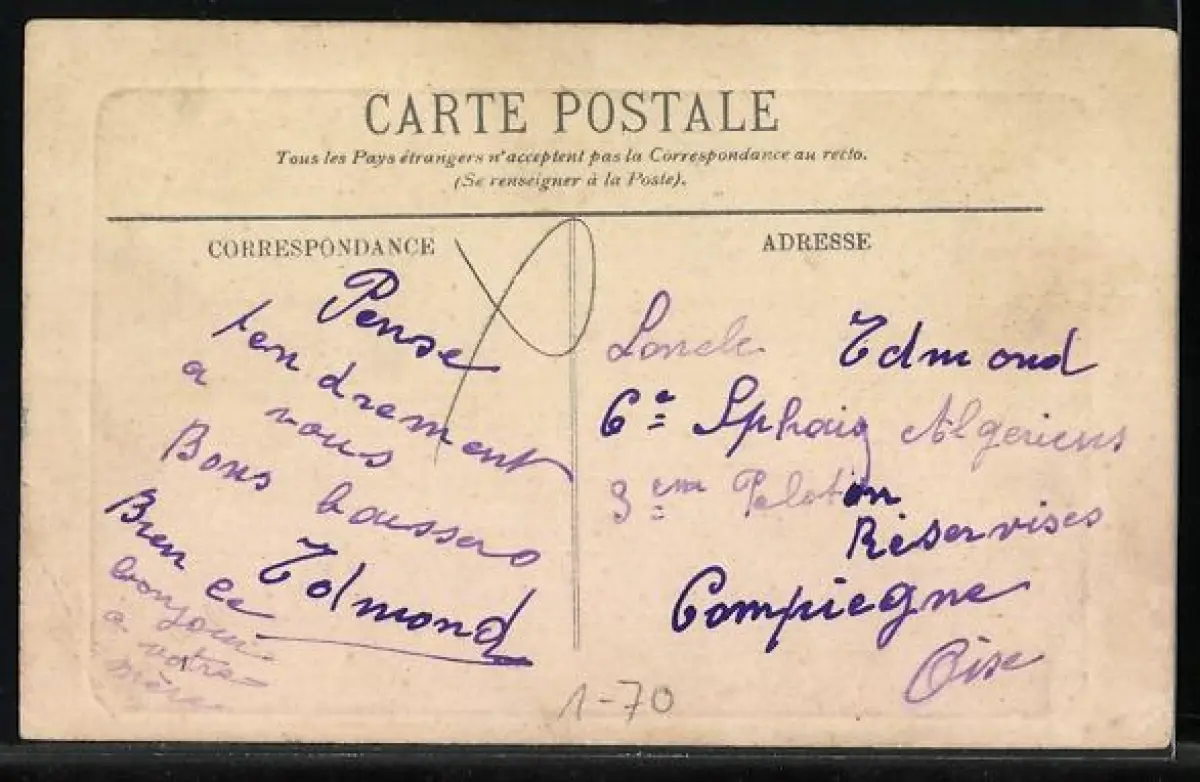 CARTE POSTALE
Tous les Pays étrangers n'acceptent pas la Correspondance au recto.
(Se renseigner à la Poste).
CORRESPONDANCE
Pense
tendrement
a vous
Bons baissers
Edmond
Bien
bonjour
a votre
mère
ADRESSE
Edmond
6e Sphais Algeriens
3em Peloton
Réservises
Compiegne
Oise
1-70